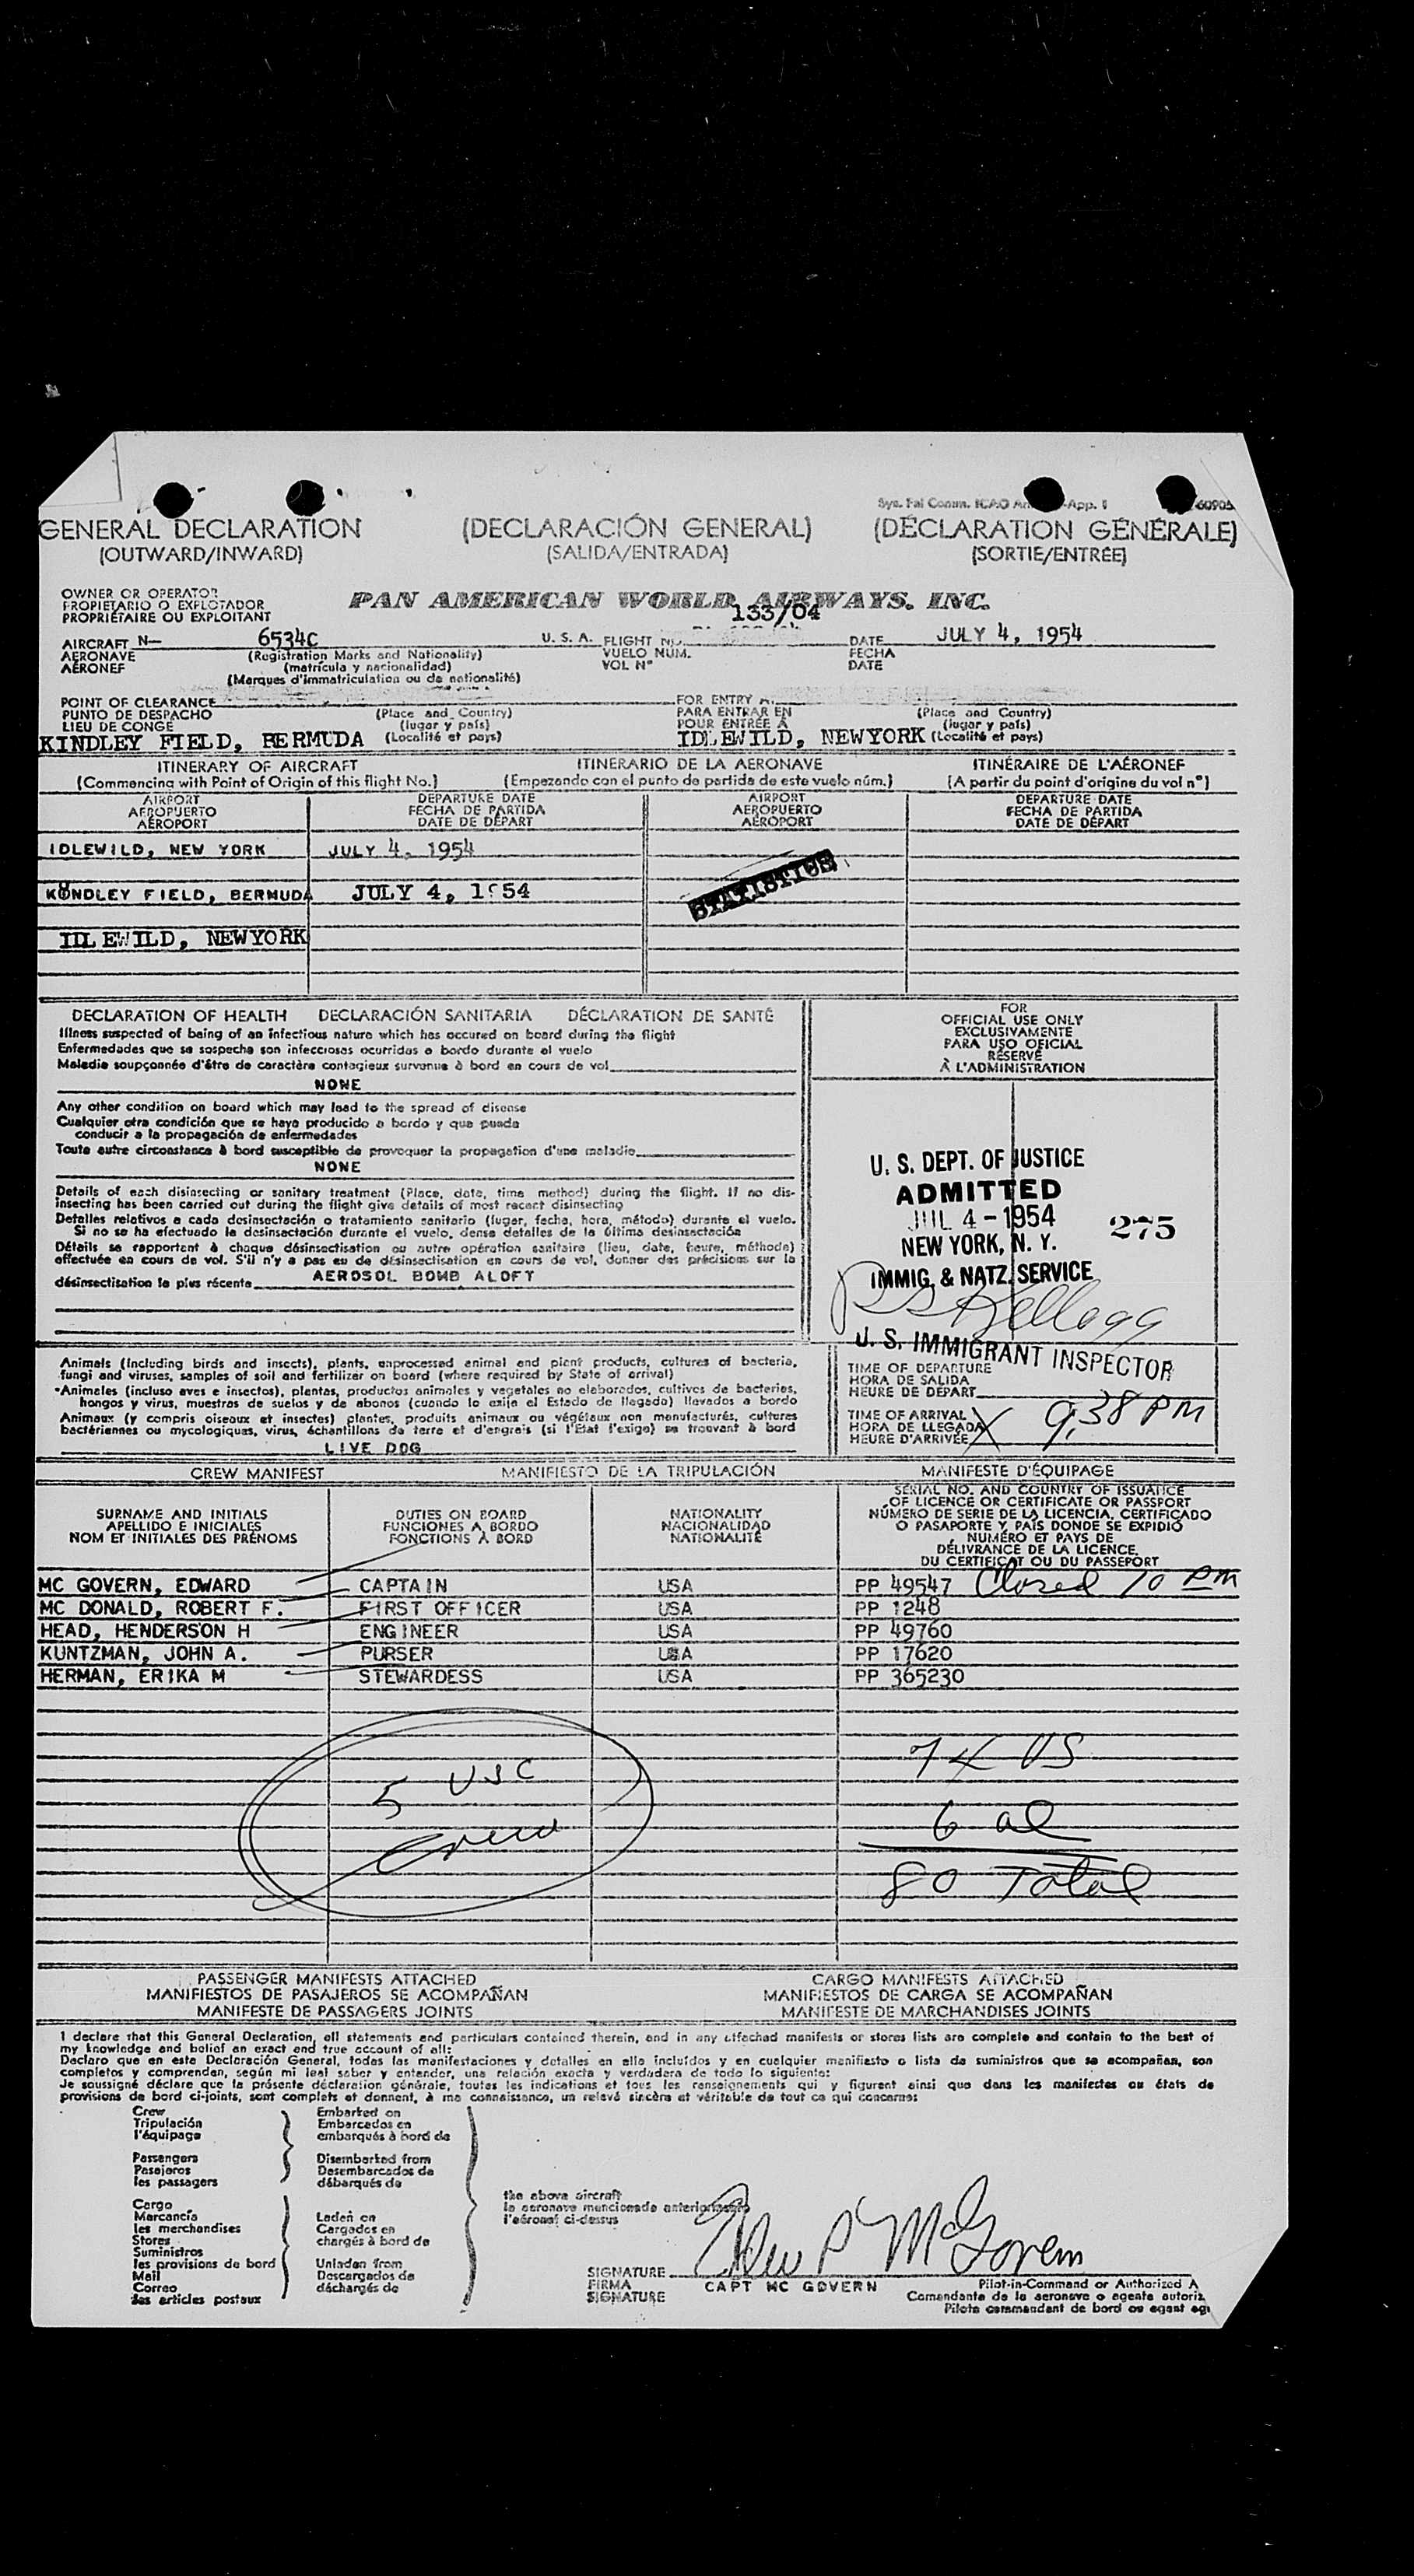 Sys. Fal Comm. ICAO An -App. 1 60905
GENERAL DECLARATION (DECLARACIÓN GENERAL) (DÉCLARATION GÉNÉRALE)
(OUTWARD/INWARD) (SALIDA/ENTRADA) (SORTIE/ENTRÉE)
OWNER OR OPERATOR
PROPIETARIO O EXPLOTADOR
PROPRIÉTAIRE OU EXPLOITANT
PAN AMERICAN WORLD AIRWAYS, INC.
133/04
AIRCRAFT N— 6534C U. S. A. FLIGHT NO. DATE JULY 4, 1954
AERONAVE (Registration Marks and Nationality) VUELO NUM. FECHA
AÉRONEF (matrícula y nacionalidad) VOL N° DATE
(Marques d'immatriculation ou de nationalité)
POINT OF CLEARANCE (Place and Country) FOR ENTRY AT (Place and Country)
PUNTO DE DESPACHO (lugar y país) PARA ENTRAR EN (lugar y país)
LIEU DE CONGÉ (Localité et pays) POUR ENTRÉE À (Localité et pays)
KINDLEY FIELD, BERMUDA IDLEWILD, NEWYORK
ITINERARY OF AIRCRAFT ITINERARIO DE LA AERONAVE ITINÉRAIRE DE L'AÉRONEF
(Commencing with Point of Origin of this flight No.) (Empezando con el punto de partida de este vuelo núm.) (A partir du point d'origine du vol n°)
AIRPORT DEPARTURE DATE AIRPORT DEPARTURE DATE
AEROPUERTO FECHA DE PARTIDA AEROPUERTO FECHA DE PARTIDA
AÉROPORT DATE DE DÉPART AÉROPORT DATE DE DÉPART
IDLEWILD, NEW YORK JULY 4, 1954
STATISTICS
KONDLEY FIELD, BERMUDA JULY 4, 1954
IDLEWILD, NEWYORK
DECLARATION OF HEALTH DECLARACIÓN SANITARIA DÉCLARATION DE SANTÉ
Illness suspected of being of an infectious nature which has occured on board during the flight
Enfermedades que se sospecha son infecciosas ocurridas a bordo durante el vuelo
Maladie soupçonnée d'être de caractère contagieux survenue à bord en cours de vol
NONE
Any other condition on board which may lead to the spread of disease
Cualquier otra condición que se haya producido a bordo y que pueda
conducir a la propagación de enfermedades
Toute autre circonstance à bord susceptible de provoquer la propagation d'une maladie
NONE
Details of each disinsecting or sanitary treatment (Place, date, time method) during the flight. If no dis-
insecting has been carried out during the flight give details of most recent disinsecting
Detalles relativos a cada desinsectación o tratamiento sanitario (lugar, fecha, hora, método) durante el vuelo.
Si no se ha efectuado la desinsectación durante el vuelo, dense detalles de la última desinsectación
Détails se rapportant à chaque désinsectisation ou autre opération sanitaire (lieu, date, heure, méthode)
effectuée en cours de vol. S'il n'y a pas eu de désinsectisation en cours de vol, donner des précisions sur la
désinsectisation la plus récente AEROSOL BOMB ALOFT
FOR
OFFICIAL USE ONLY
EXCLUSIVAMENTE
PARA USO OFICIAL
RÉSERVÉ
À L'ADMINISTRATION
U. S. DEPT. OF JUSTICE
ADMITTED
JUL 4 - 1954 275
NEW YORK, N. Y.
IMMIG. & NATZ. SERVICE
Kellogg
U. S. IMMIGRANT INSPECTOR
Animals (Including birds and insects), plants, unprocessed animal and plant products, cultures of bacteria,
fungi and viruses, samples of soil and fertilizer on board (where required by State of arrival)
Animales (incluso aves e insectos), plantas, productos animales y vegetales no elaborados, cultivos de bacterias,
hongos y virus, muestras de suelos y de abonos (cuando lo exija el Estado de llegada) llevados a bordo
Animaux (y compris oiseaux et insectes) plantes, produits animaux ou végétaux non manufacturés, cultures
bactériennes ou mycologiques, virus, échantillons de terre et d'engrais (si l'État l'exige) se trouvant à bord
LIVE DOG
TIME OF DEPARTURE
HORA DE SALIDA
HEURE DE DÉPART
TIME OF ARRIVAL
HORA DE LLEGADA X 9,38 PM
HEURE D'ARRIVÉE
CREW MANIFEST MANIFIESTO DE LA TRIPULACIÓN MANIFESTE D'ÉQUIPAGE
SURNAME AND INITIALS DUTIES ON BOARD NATIONALITY
APELLIDO E INICIALES FUNCIONES A BORDO NACIONALIDAD
NOM ET INITIALES DES PRÉNOMS FONCTIONS À BORD NATIONALITÉ
SERIAL NO. AND COUNTRY OF ISSUANCE
OF LICENCE OR CERTIFICATE OR PASSPORT
NÚMERO DE SERIE DE LA LICENCIA, CERTIFICADO
O PASAPORTE Y PAÍS DONDE SE EXPIDIÓ
NUMÉRO ET PAYS DE
DÉLIVRANCE DE LA LICENCE,
DU CERTIFICAT OU DU PASSEPORT
MC GOVERN, EDWARD CAPTAIN USA PP 49547 Closed 10 PM
MC DONALD, ROBERT F. FIRST OFFICER USA PP 1248
HEAD, HENDERSON H ENGINEER USA PP 49760
KUNTZMAN, JOHN A. PURSER USA PP 17620
HERMAN, ERIKA M STEWARDESS USA PP 365230
5 USC
crew
74 US
6 al
80 Total
PASSENGER MANIFESTS ATTACHED CARGO MANIFESTS ATTACHED
MANIFIESTOS DE PASAJEROS SE ACOMPAÑAN MANIFIESTOS DE CARGA SE ACOMPAÑAN
MANIFESTE DE PASSAGERS JOINTS MANIFESTE DE MARCHANDISES JOINTS
I declare that this General Declaration, all statements and particulars contained therein, and in any attached manifests or stores lists are complete and contain to the best of
my knowledge and belief an exact and true account of all:
Declaro que en esta Declaración General, todas las manifestaciones y detalles en ella incluídos y en cualquier manifiesto o lista de suministros que se acompañan, son
completos y comprenden, según mi leal saber y entender, una relación exacta y verdadera de todo lo siguiente:
Je soussigné déclare que la présente déclaration générale, toutes les indications et tous les renseignements qui y figurent ainsi que dans les manifestes ou états de
provisions de bord ci-joints, sont complets et donnent, à ma connaissance, un relevé sincère et véritable de tout ce qui concerne:
Crew Embarked on
Tripulación Embarcados en
l'équipage embarqués à bord de
Passengers Disembarked from
Pasajeros Desembarcados de
les passagers débarqués de
Cargo
Mercancía Laden on
les merchandises Cargados en
Stores chargés à bord de
Suministros
les provisions de bord Unladen from
Mail Descargados de
Correo déchargés de
les articles postaux
the above aircraft
la aeronave mencionada anteriormente
l'aéronef ci-dessus
SIGNATURE
FIRMA
SIGNATURE
McGovern
CAPT MC GOVERN
Pilot-in-Command or Authorized A
Comandante de la aeronave o agente autoriz
Pilote commandant de bord ou agent ag